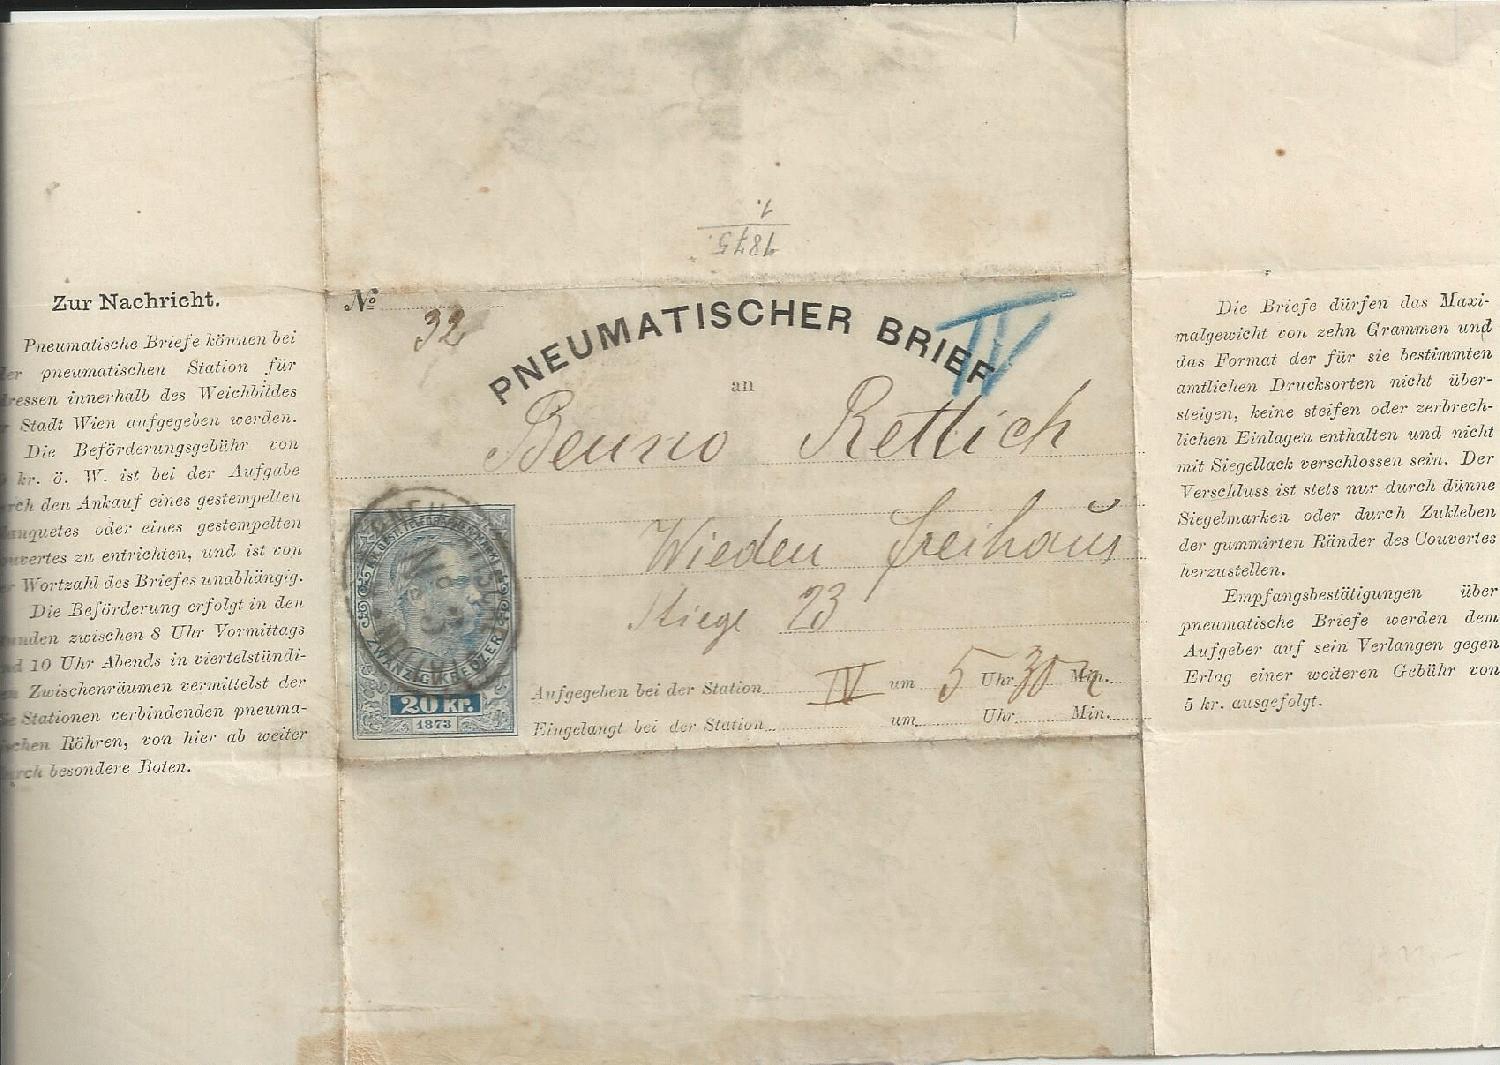 Zur Nachricht.
Pneumatische Briefe können bei
pneumatischen Station für
innerhalb des Weichbildes
Stadt Wien aufgegeben werden.
Die Beförderungsgebühr von
kr. ö. W. ist bei der Aufgabe
den Ankauf eines gestempelten
oder eines gestempelten
zu entrichten, und ist von
Wortzahl des Briefes unabhängig.
Die Beförderung erfolgt in den
zwischen 8 Uhr Vormittags
10 Uhr Abends in viertelstündi-
Zwischenräumen vermittelst der
Stationen verbindenden pneuma-
Röhren, von hier ab weiter
besondere Boten.
1875.
1.
No 32
PNEUMATISCHER BRIEF
IV
an
Benno Rettlich
Wieden Freihaus
Stiege 23
ZWANZIG KREUZER
20 KR.
1873
Aufgegeben bei der Station IV um 5 Uhr 30 Min.
Eingelangt bei der Station um Uhr Min.
Die Briefe dürfen das Maxi-
malgewicht von zehn Grammen und
das Format der für sie bestimmten
amtlichen Drucksorten nicht über-
steigen, keine steifen oder zerbrech-
lichen Einlagen enthalten und nicht
mit Siegellack verschlossen sein. Der
Verschluss ist stets nur durch dünne
Siegelmarken oder durch Zukleben
der gummirten Ränder des Couvertes
herzustellen.
Empfangsbestätigungen über
pneumatische Briefe werden dem
Aufgeber auf sein Verlangen gegen
Erlag einer weiteren Gebühr von
5 kr. ausgefolgt.